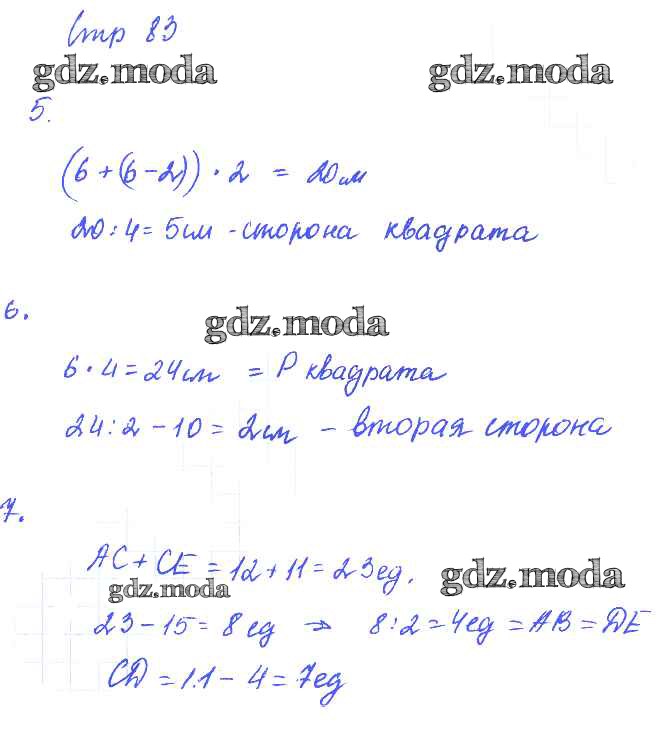 Стр 83
gdz.moda gdz.moda
5.
(6 + (6 - 2)) · 2 = 20см
20 : 4 = 5см - сторона квадрата
6.
gdz.moda
6 · 4 = 24см = P квадрата
24 : 2 - 10 = 2см - вторая сторона
7.
AC + CE = 12 + 11 = 23ед.
gdz.moda gdz.moda
23 - 15 = 8 ед ⇒ 8 : 2 = 4ед = AB = DE
CD = 11 - 4 = 7ед